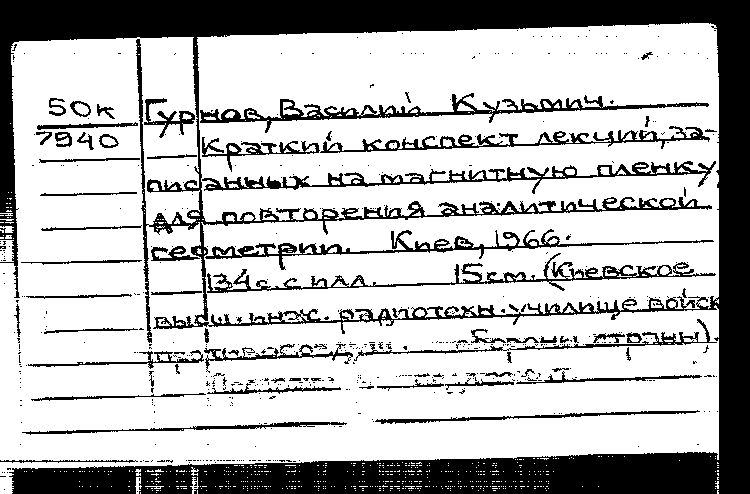 50к Гурнов, Василий Кузьмич.
7940 Краткий конспект лекций, за-
писанных на магнитную пленку,
для повторения аналитической
геометрии. Киев, 1966.
134с. с илл. 15см. (Киевское
высш. инж. радиотехн. училище войск
противовоздуш. обороны страны).